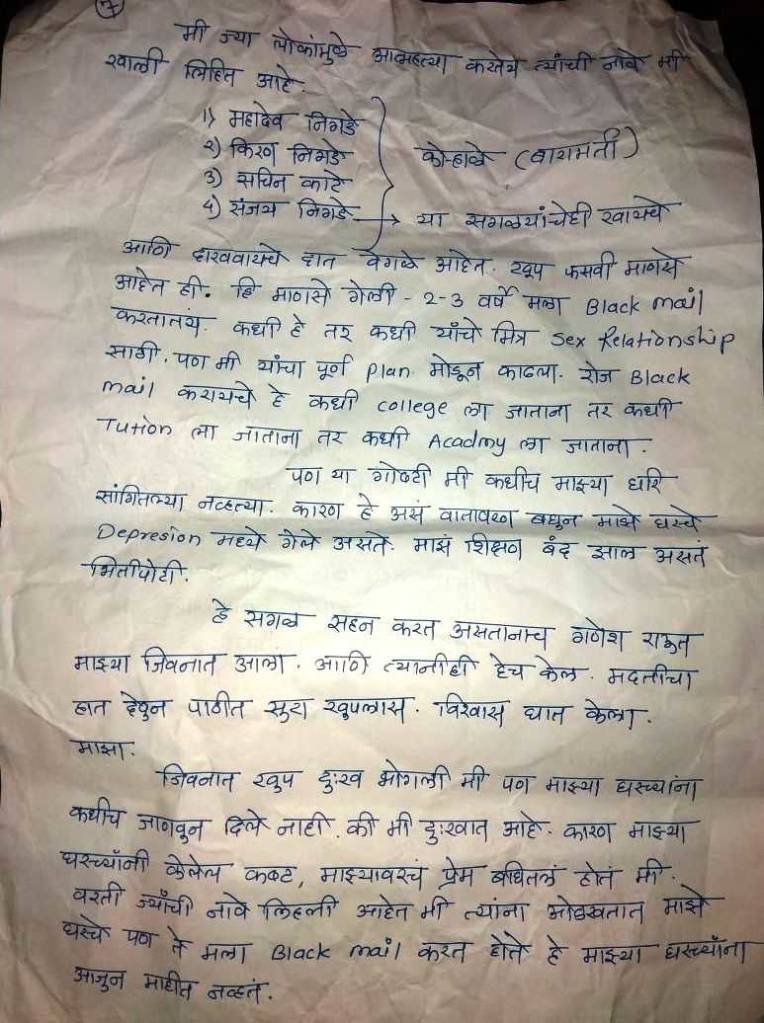 7
मी ज्या लोकांमुळे आत्महत्या करतेय त्यांची नावे मी
खाली लिहित आहे.
1) महादेव निगडे
2) किरण निगडे
3) सचिन काटे
4) संजय निगडे
कोऱ्हाळे (बारामती)
→ या सगळ्यांचेही खायचे
आणि दाखवायचे दात वेगळे आहेत. खूप फसवी माणसे
आहेत ही. हि माणसे गेली - 2-3 वर्षे मला Black mail
करतातय. कधी हे तर कधी यांचे मित्र Sex Relationship
साठी. पण मी यांचा पूर्ण plan मोडून काढला. रोज Black
mail करायचे हे कधी college ला जाताना तर कधी
Tution ला जाताना तर कधी Acadmy ला जाताना.
पण या गोष्टी मी कधीच माझ्या घरि
सांगितल्या नव्हत्या. कारण हे असं वातावरण बघुन माझे घरचे
Depresion मध्ये गेले असते. माझं शिक्षण बंद झाल असतं
भितीपोटी.
हे सगळ सहन करत असतानाच गणेश राऊत
माझ्या जिवनात आला. आणि त्यानीही हेच केल. मदतीचा
हात देवुन पाठीत सुरा खुपलास. विश्वास घात केला.
माझा.
जिवनात खुप दुःख भोगली मी पण माझ्या घरच्यांना
कधीच जाणवून दिले नाही. की मी दुःखात आहे. कारण माझ्या
घरच्याँनी केलेल कष्ट, माझ्यावरचं प्रेम बघितलं होतं मी.
वरती ज्याँची नावे लिहली आहेत मी त्यांना ओळखतात माझे
घरचे पण ते मला Black mail करत होते हे माझ्या घरच्याँना
आजुन माहीत नव्हतं.